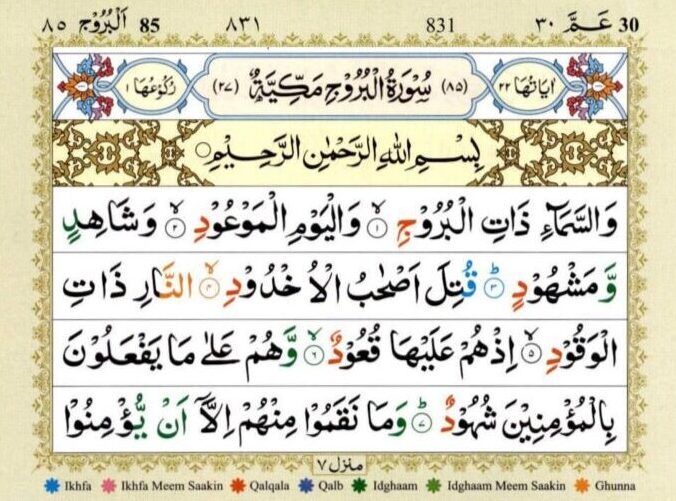 ٨٥ اَلْبُرُوْج 85 ٨٣١ 831 عَمَّ ٣٠ 30
اٰيَاتُهَا ٢٢ (٨٥) سُوْرَةُ الْبُرُوْجِ مَكِّيَّةٌ (٢٧) رُكُوْعُهَا ١
بِسْمِ اللّٰهِ الرَّحْمٰنِ الرَّحِيْمِ
وَالسَّمَآءِ ذَاتِ الْبُرُوْجِ ۙ‏﴿١﴾ وَالْيَوْمِ الْمَوْعُوْدِ ۙ‏﴿٢﴾ وَشَاهِدٍ
وَّمَشْهُوْدٍ ؕ‏﴿٣﴾ قُتِلَ اَصْحٰبُ الْاُخْدُوْدِ ۙ‏﴿٤﴾ النَّارِ ذَاتِ
الْوَقُوْدِ ۙ‏﴿٥﴾ اِذْ هُمْ عَلَيْهَا قُعُوْدٌ ۙ‏﴿٦﴾ وَّهُمْ عَلٰى مَا يَفْعَلُوْنَ
بِالْمُؤْمِنِيْنَ شُهُوْدٌ ؕ‏﴿٧﴾ وَمَا نَقَمُوْا مِنْهُمْ اِلَّاۤ اَنْ يُّؤْمِنُوْا
منزل ٧
Ikhfa Ikhfa Meem Saakin Qalqala Qalb Idghaam Idghaam Meem Saakin Ghunna